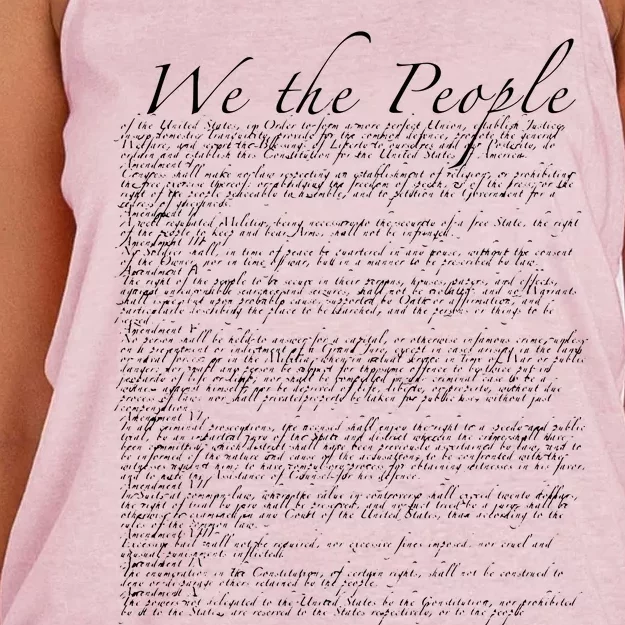 We the People
of the United States, in Order to form a more perfect Union, establish Justice,
insure domestic Tranquility, provide for the common defence, promote the general
Welfare, and secure the Blessings of Liberty to ourselves and our Posterity, do
ordain and establish this Constitution for the United States of America.
Amendment I
Congress shall make no law respecting an establishment of religion, or prohibiting
the free exercise thereof; or abridging the freedom of speech, or of the press; or the
right of the people peaceably to assemble, and to petition the Government for a
redress of grievances.
Amendment II
A well regulated Militia, being necessary to the security of a free State, the right
of the people to keep and bear Arms, shall not be infringed.
Amendment III
No Soldier shall, in time of peace be quartered in any house, without the consent
of the Owner, nor in time of war, but in a manner to be prescribed by law.
Amendment
The right of the people to be secure in their persons, houses, papers, and effects,
against unreasonable searches and seizures, shall not be violated, and no Warrants
shall issue, but upon probable cause, supported by Oath or affirmation, and
particularly describing the place to be searched, and the persons or things to be
seized.
Amendment V
No person shall be held to answer for a capital, or otherwise infamous crime, unless
on a presentment or indictment of a Grand Jury, except in cases arising in the land
or naval forces, or in the Militia, when in actual service in time of War or public
danger; nor shall any person be subject for the same offence to be twice put in
jeopardy of life or limb; nor shall be compelled in any criminal case to be a
witness against himself, nor be deprived of life, liberty, or property, without due
process of law; nor shall private property be taken for public use, without just
compensation.
Amendment VI
In all criminal prosecutions, the accused shall enjoy the right to a speedy and public
trial, by an impartial jury of the State and district wherein the crime shall have
been committed, which district shall have been previously ascertained by law, and to
be informed of the nature and cause of the accusation; to be confronted with the
witnesses against him; to have compulsory process for obtaining witnesses in his favor,
and to have the Assistance of Counsel for his defence.
Amendment
In Suits at common law, where the value in controversy shall exceed twenty dollars,
the right of trial by jury shall be preserved, and no fact tried by a jury, shall be
otherwise re-examined in any Court of the United States, than according to the
rules of the common law.
Amendment VIII
Excessive bail shall not be required, nor excessive fines imposed, nor cruel and
unusual punishments inflicted.
Amendment IX
The enumeration in the Constitution, of certain rights, shall not be construed to
deny or disparage others retained by the people.
Amendment X
The powers not delegated to the United States by the Constitution, nor prohibited
by it to the States, are reserved to the States respectively, or to the people